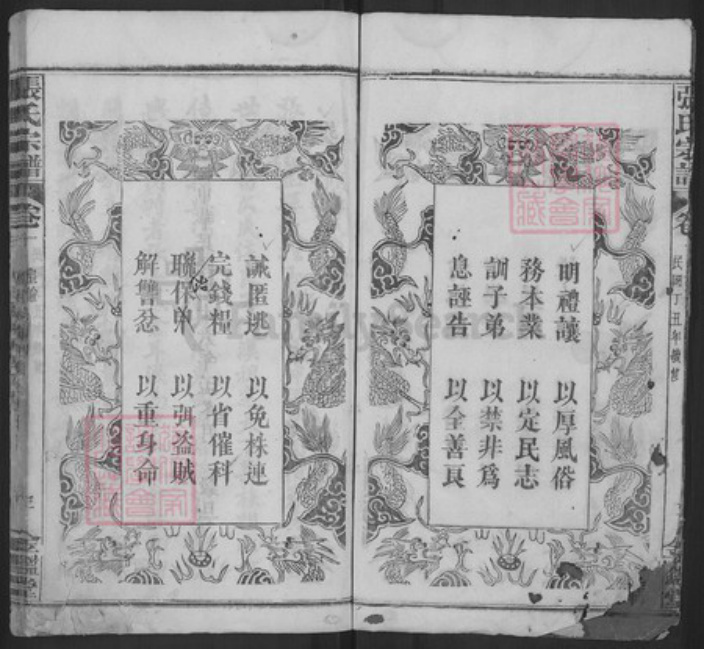 張氏宗譜
卷一
民國丁丑年續修
明禮讓 以厚風俗
務本業 以定民志
訓子弟 以禁非為
息誣告 以全善良
誡匿逃 以免株連
完錢糧 以省催科
聯保甲 以弭盗賊
解讐忿 以重身命
張氏宗譜
卷一